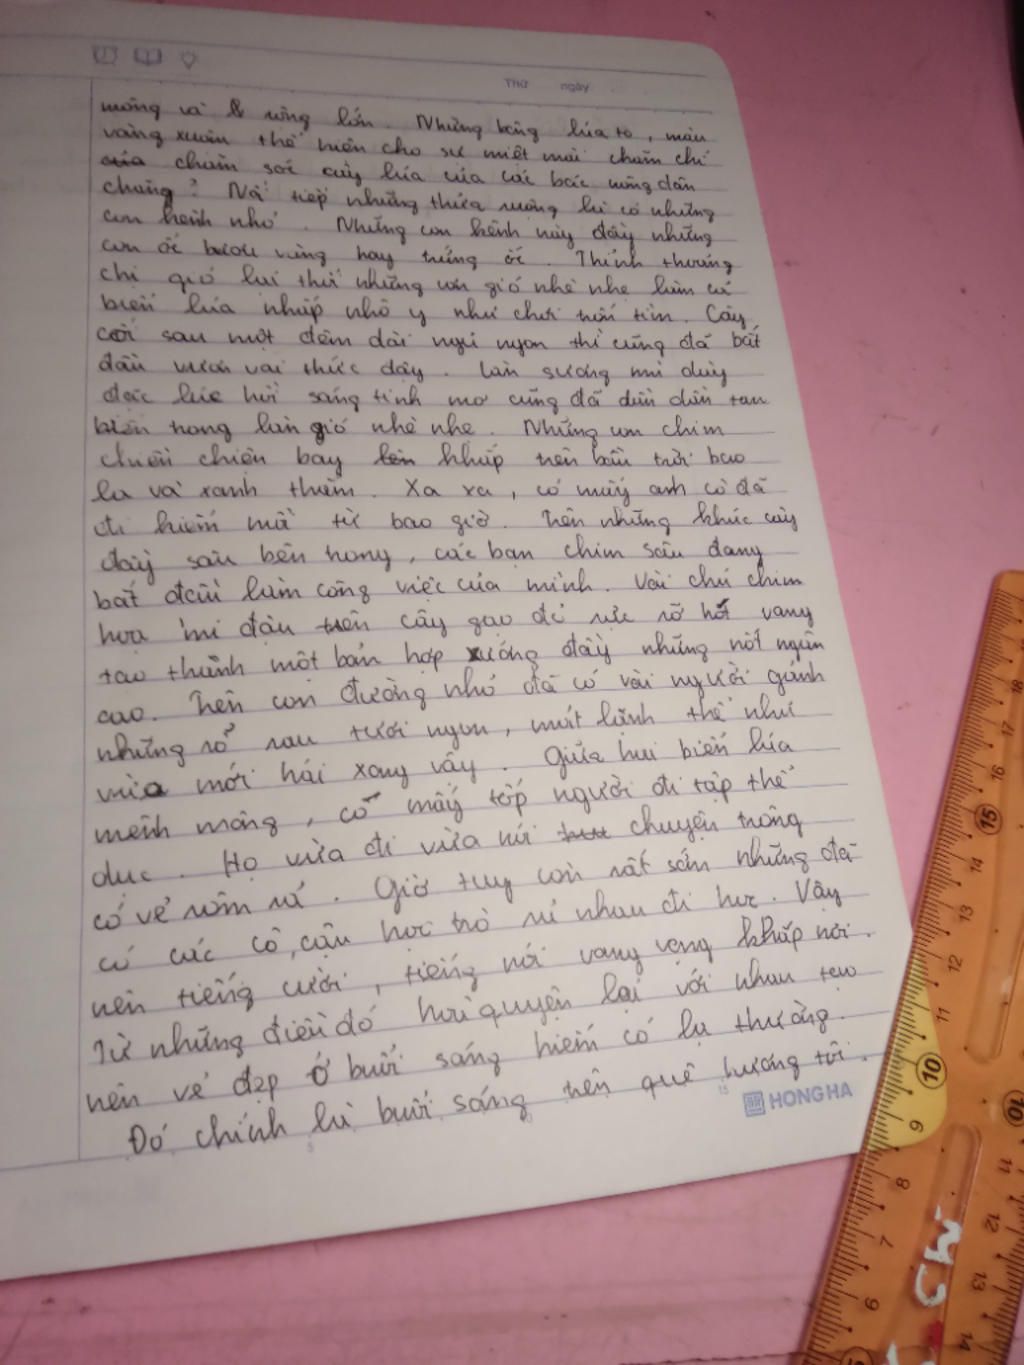 Thứ ngày
mông và rộng lớn. Những bông lúa to, màu
vàng xuộm thể hiện cho sự miệt mài chăm chỉ
chăm sóc cây lúa của các bác nông dân
chăng? Nối tiếp những thửa ruộng là có những
con kênh nhỏ. Những con kênh này đầy những
con ốc bươu vàng hay trứng ốc. Thỉnh thoảng
chị gió lại thổi những cơn gió nhè nhẹ làm cả
biển lúa nhấp nhô y như chơi trốn tìm. Cây
cối sau một đêm dài ngủ ngon thì cũng đã bắt
đầu vươn vai thức dậy. Làn sương mù dày
đặc lúc hồi sáng tinh mơ cũng đã dần dần tan
biến trong làn gió nhè nhẹ. Những con chim
chiền chiện bay khắp trên bầu trời bao
la và xanh thẳm. Xa xa, có mấy anh cò đã
đi kiếm mồi từ bao giờ. Trên những khúc cây
đầy sâu bên trong, các bạn chim sâu đang
bắt đầu làm công việc của mình. Vài chú chim
họa mi đậu trên cây gạo đỏ rực rỡ hót vang
tạo thành một bản hợp xướng đầy những nốt ngân
cao. Trên con đường nhỏ đã có vài người gánh
những rổ rau tươi ngon, mát lành thể như
vừa mới hái xong vậy. Giữa hai biển lúa
mênh mông, có mấy tốp người đi tập thể
dục. Họ vừa đi vừa nói chuyện trông
có vẻ rôm rả. Giờ tuy còn rất sớm nhưng đã
có các cô, cậu học trò rủ nhau đi học. Vậy
nên tiếng cười, tiếng nói vang vọng khắp nơi.
Từ những điều đó hòa quyện lại với nhau tạo
nên vẻ đẹp ở buổi sáng hiếm có lạ thường.
Đó chính là buổi sáng trên quê hương tôi.
HONG HA